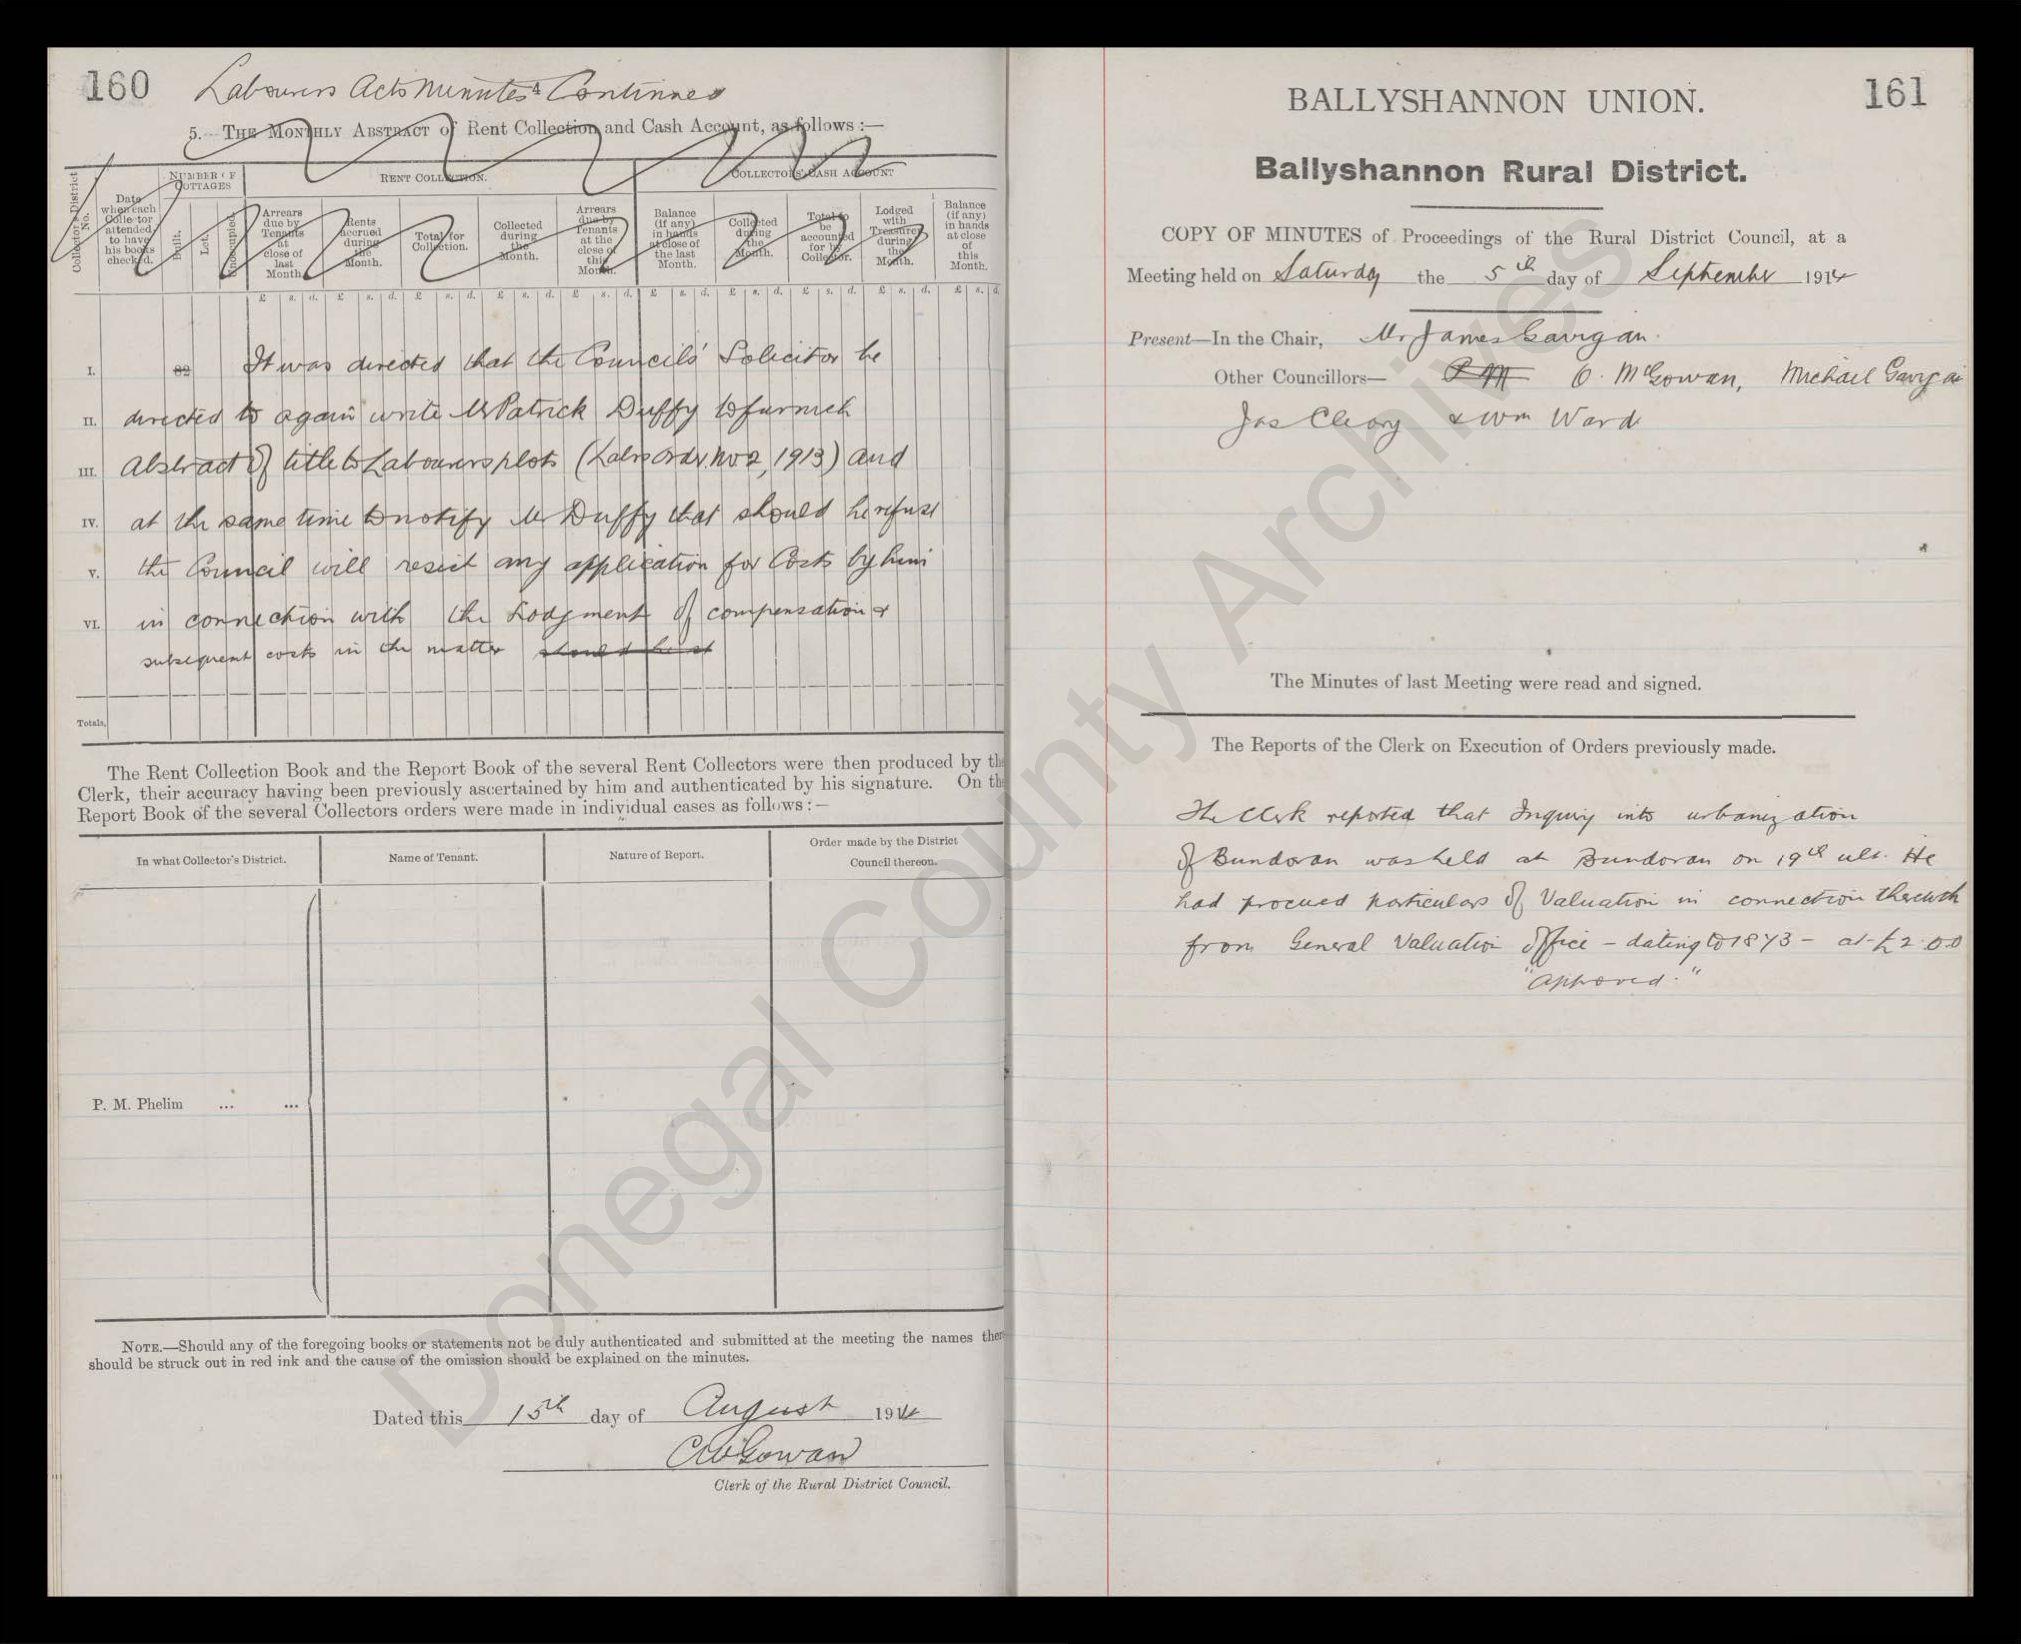 160
Labourers Acts Minutes Continued
5. THE MONTHLY ABSTRACT of Rent Collection and Cash Account, as follows :—
Collector's District No.
Date when each Collector attended to have his books checked.
NUMBER OF COTTAGES
Built.
Let.
Unoccupied.
RENT COLLECTION.
Arrears due by Tenants at close of last Month.
Rents accrued during the Month.
Total for Collection.
Collected during the Month.
Arrears due by Tenants at the close of this Month.
COLLECTORS' CASH ACCOUNT
Balance (if any) in hands at close of the last Month.
Collected during the Month.
Total to be accounted for by Collector.
Lodged with Treasurer during the Month.
Balance (if any) in hands at close of this Month.
£ s. d. £ s. d. £ s. d. £ s. d. £ s. d. £ s. d. £ s. d. £ s. d. £ s. d. £ s. d.
I. It was directed that the Councils' Solicitor be
II. directed to again write Mr Patrick Duffy to furnish
III. Abstract of title to Labourers plots (Labrs Order No 2, 1913) and
IV. at the same time to notify Mr Duffy that should he refuse
V. the Council will resist any application for Costs by him
VI. in connection with the Lodgment of compensation &
subsequent costs in the matter
Totals,
The Rent Collection Book and the Report Book of the several Rent Collectors were then produced by the
Clerk, their accuracy having been previously ascertained by him and authenticated by his signature. On the
Report Book of the several Collectors orders were made in individual cases as follows :—
In what Collector's District.
Name of Tenant.
Nature of Report.
Order made by the District
Council thereon.
P. M. Phelim ... ...
NOTE.—Should any of the foregoing books or statements not be duly authenticated and submitted at the meeting the names ther
should be struck out in red ink and the cause of the omission should be explained on the minutes.
Dated this 15th day of August 1914
C McGowan
Clerk of the Rural District Council.
161
BALLYSHANNON UNION.
Ballyshannon Rural District.
COPY OF MINUTES of Proceedings of the Rural District Council, at a
Meeting held on Saturday the 5th day of September 1914
Present—In the Chair, Mr James Gavigan.
Other Councillors— P M O. McGowan, Michael Gavigan
Jas Cleary & Wm Ward
The Minutes of last Meeting were read and signed.
The Reports of the Clerk on Execution of Orders previously made.
The Clerk reported that Inquiry into urbanization
of Bundoran was held at Bundoran on 19th ult. He
had procured particulars of Valuation in connection therewith
from General Valuation Office – dating to 1873 – at £2.0.0
"Approved."
Donegal County Archives